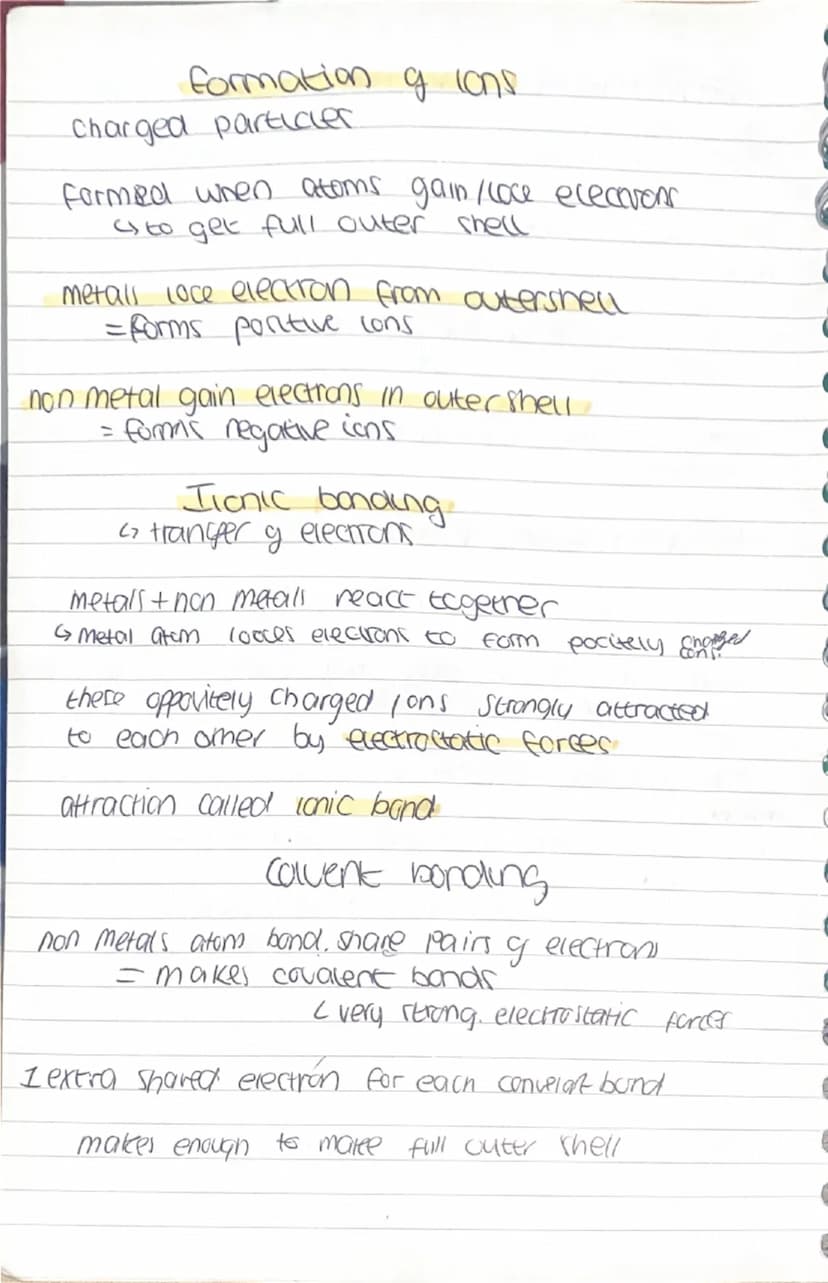 Formation of ions
charged particles
formed when atoms gain/lose electrons
↳ to get full outer shell
metals lose electron from outershell
= forms positive ions
non metal gain electrons in outer shell
= forms negative ions
Iionic bonding
↳ transfer of electrons
metals + non metals react together
↳ metal atom looses electrons to form positely charged ions.
these oppositely charged ions strongly attracted
to each other by electrostatic forces
attraction called ionic bond
Colvent bonding
non metals atom bond. share pairs of electrons
= makes covalent bonds
↳ very strong. electrostatic forces
1 extra shared electron for each convelat bond
makes enough to make full outer shell